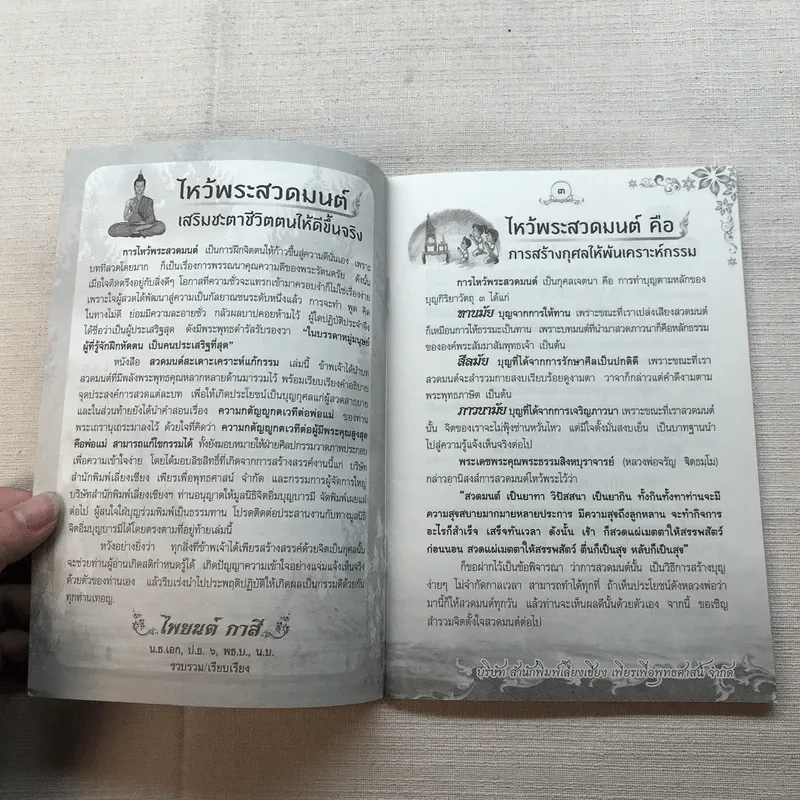 ไหว้พระสวดมนต์
เสริมชะตาชีวิตตนให้ดีขึ้นจริง
การไหว้พระสวดมนต์ เป็นการฝึกจิตตนให้ก้าวขึ้นสู่ความดีนั่นเอง เพราะ
บทที่สวดโดยมาก ก็เป็นเรื่องการพรรณนาคุณความดีของพระรัตนตรัย ดังนั้น
เมื่อใจคิดตรึงอยู่กับสิ่งดีๆ โอกาสที่ความชั่วจะแทรกเข้ามาครอบงำก็ไม่ใช่เรื่องง่าย
เพราะใจผู้สวดได้พัฒนาสู่ความเป็นกัลยาณชนระดับหนึ่งแล้ว การจะทำ พูด คิด
ในทางไม่ดี ย่อมมีความละอายชั่ว กลัวผลบาปคอยห้ามไว้ ผู้ใดปฏิบัติประจำจึง
ได้ชื่อว่าเป็นผู้ประเสริฐสุด ดังมีพระพุทธดำรัสรับรองว่า "ในบรรดาหมู่มนุษย์
ผู้ที่รู้จักฝึกหัดตน เป็นคนประเสริฐที่สุด"
หนังสือ สวดมนต์สะเดาะเคราะห์แก้กรรม เล่มนี้ ข้าพเจ้าได้นำบท
สวดมนต์ที่มีพลังพระพุทธคุณหลากหลายด้านมารวมไว้ พร้อมเรียบเรียงคำอธิบาย
จุดประสงค์การสวดแต่ละบท เพื่อให้เกิดประโยชน์เป็นบุญกุศลแก่ผู้สวดสาธยาย
และในส่วนท้ายยังได้นำคำสอนเรื่อง ความกตัญญูกตเวทีต่อพ่อแม่ ของท่าน
พระเถรานุเถระมาลงไว้ ด้วยใจที่คิดว่า ความกตัญญูกตเวทีต่อผู้มีพระคุณสูงสุด
คือพ่อแม่ สามารถแก้ไขกรรมได้ ทั้งยังมอบหมายให้ฝ่ายศิลปกรรมวาดภาพประกอบ
เพื่อความเข้าใจง่าย โดยได้มอบลิขสิทธิ์ที่เกิดจากการสร้างสรรค์งานนี้แก่ บริษัท
สำนักพิมพ์เลี่ยงเชียง เพียรเพื่อพุทธศาสน์ จำกัด และกรรมการผู้จัดการใหญ่
บริษัทสำนักพิมพ์เลี่ยงเชียงฯ ท่านอนุญาตให้มูลนิธิจิตอิ่มบุญบารมี จัดพิมพ์เผยแผ่
ต่อไป ผู้สนใจใฝ่บุญร่วมพิมพ์เป็นธรรมทาน โปรดติดต่อประสานงานกับทางมูลนิธิ
จิตอิ่มบุญบารมีได้โดยตรงตามที่อยู่ท้ายเล่มนี้
หวังอย่างยิ่งว่า ทุกสิ่งที่ข้าพเจ้าได้เพียรสร้างสรรค์ด้วยจิตเป็นกุศลนั้น
จะช่วยให้ท่านผู้อ่านเกิดสติกำหนดรู้ได้ เกิดปัญญาความเข้าใจอย่างแจ่มแจ้งเห็นจริง
ด้วยตัวของท่านเอง แล้วรีบเร่งนำไปประพฤติปฏิบัติให้เกิดผลเป็นกรรมดีด้วยกัน
ทุกท่านเทอญ.
ไพยนต์ กาสี
น.ธ.เอก, ป.ธ. ๖, พธ.บ., น.บ.
รวบรวม/เรียบเรียง
๓
ไหว้พระสวดมนต์ คือ
การสร้างกุศลให้พ้นเคราะห์กรรม
การไหว้พระสวดมนต์ เป็นกุศลเจตนา คือ การทำบุญตามหลักของ
บุญกิริยาวัตถุ ๓ ได้แก่
ทานมัย บุญจากการให้ทาน เพราะขณะที่เราเปล่งเสียงสวดมนต์
ก็เหมือนการให้ธรรมะเป็นทาน เพราะบทมนต์ที่นำมาสวดภาวนาก็คือหลักธรรม
ขององค์พระสัมมาสัมพุทธเจ้า เป็นต้น
สีลมัย บุญที่ได้จากการรักษาศีลเป็นปกติดี เพราะขณะที่เรา
สวดมนต์จะสำรวมกายสงบเรียบร้อยดูงามตา วาจาก็กล่าวแต่คำดีงามตาม
พระพุทธภาษิต เป็นต้น
ภาวนามัย บุญที่ได้จากการเจริญภาวนา เพราะขณะที่เราสวดมนต์
นั้น จิตของเราจะไม่ฟุ้งซ่านหวั่นไหว แต่มีใจตั้งมั่นสงบเย็น เป็นบาทฐานนำ
ไปสู่ความรู้แจ้งเห็นจริงต่อไป
พระเดชพระคุณพระธรรมสิงหบุราจารย์ (หลวงพ่อจรัญ ฐิตธมฺโม)
กล่าวอานิสงส์การสวดมนต์ไหว้พระไว้ว่า
"สวดมนต์ เป็นยาทา วิปัสสนา เป็นยากิน ทั้งกินทั้งทาท่านจะมี
ความสุขสบายมากมายหลายประการ มีความสุขถึงลูกหลาน จะทำกิจการ
อะไรก็สำเร็จ เสร็จทันเวลา ดังนั้น เช้า ก็สวดแผ่เมตตาให้สรรพสัตว์
ก่อนนอน สวดแผ่เมตตาให้สรรพสัตว์ ตื่นก็เป็นสุข หลับก็เป็นสุข"
ก็ขอฝากไว้เป็นข้อพิจารณา ว่าการสวดมนต์นั้น เป็นวิธีการสร้างบุญ
ง่ายๆ ไม่จำกัดกาลเวลา สามารถทำได้ทุกที่ ถ้าเห็นประโยชน์ดังหลวงพ่อว่า
มานี้ก็ให้สวดมนต์ทุกวัน แล้วท่านจะเห็นผลดีนั้นด้วยตัวเอง จากนี้ ขอเชิญ
สำรวมจิตตั้งใจสวดมนต์ต่อไป
บริษัท สำนักพิมพ์เลี่ยงเชียง เพียรเพื่อพุทธศาสน์ จำกัด